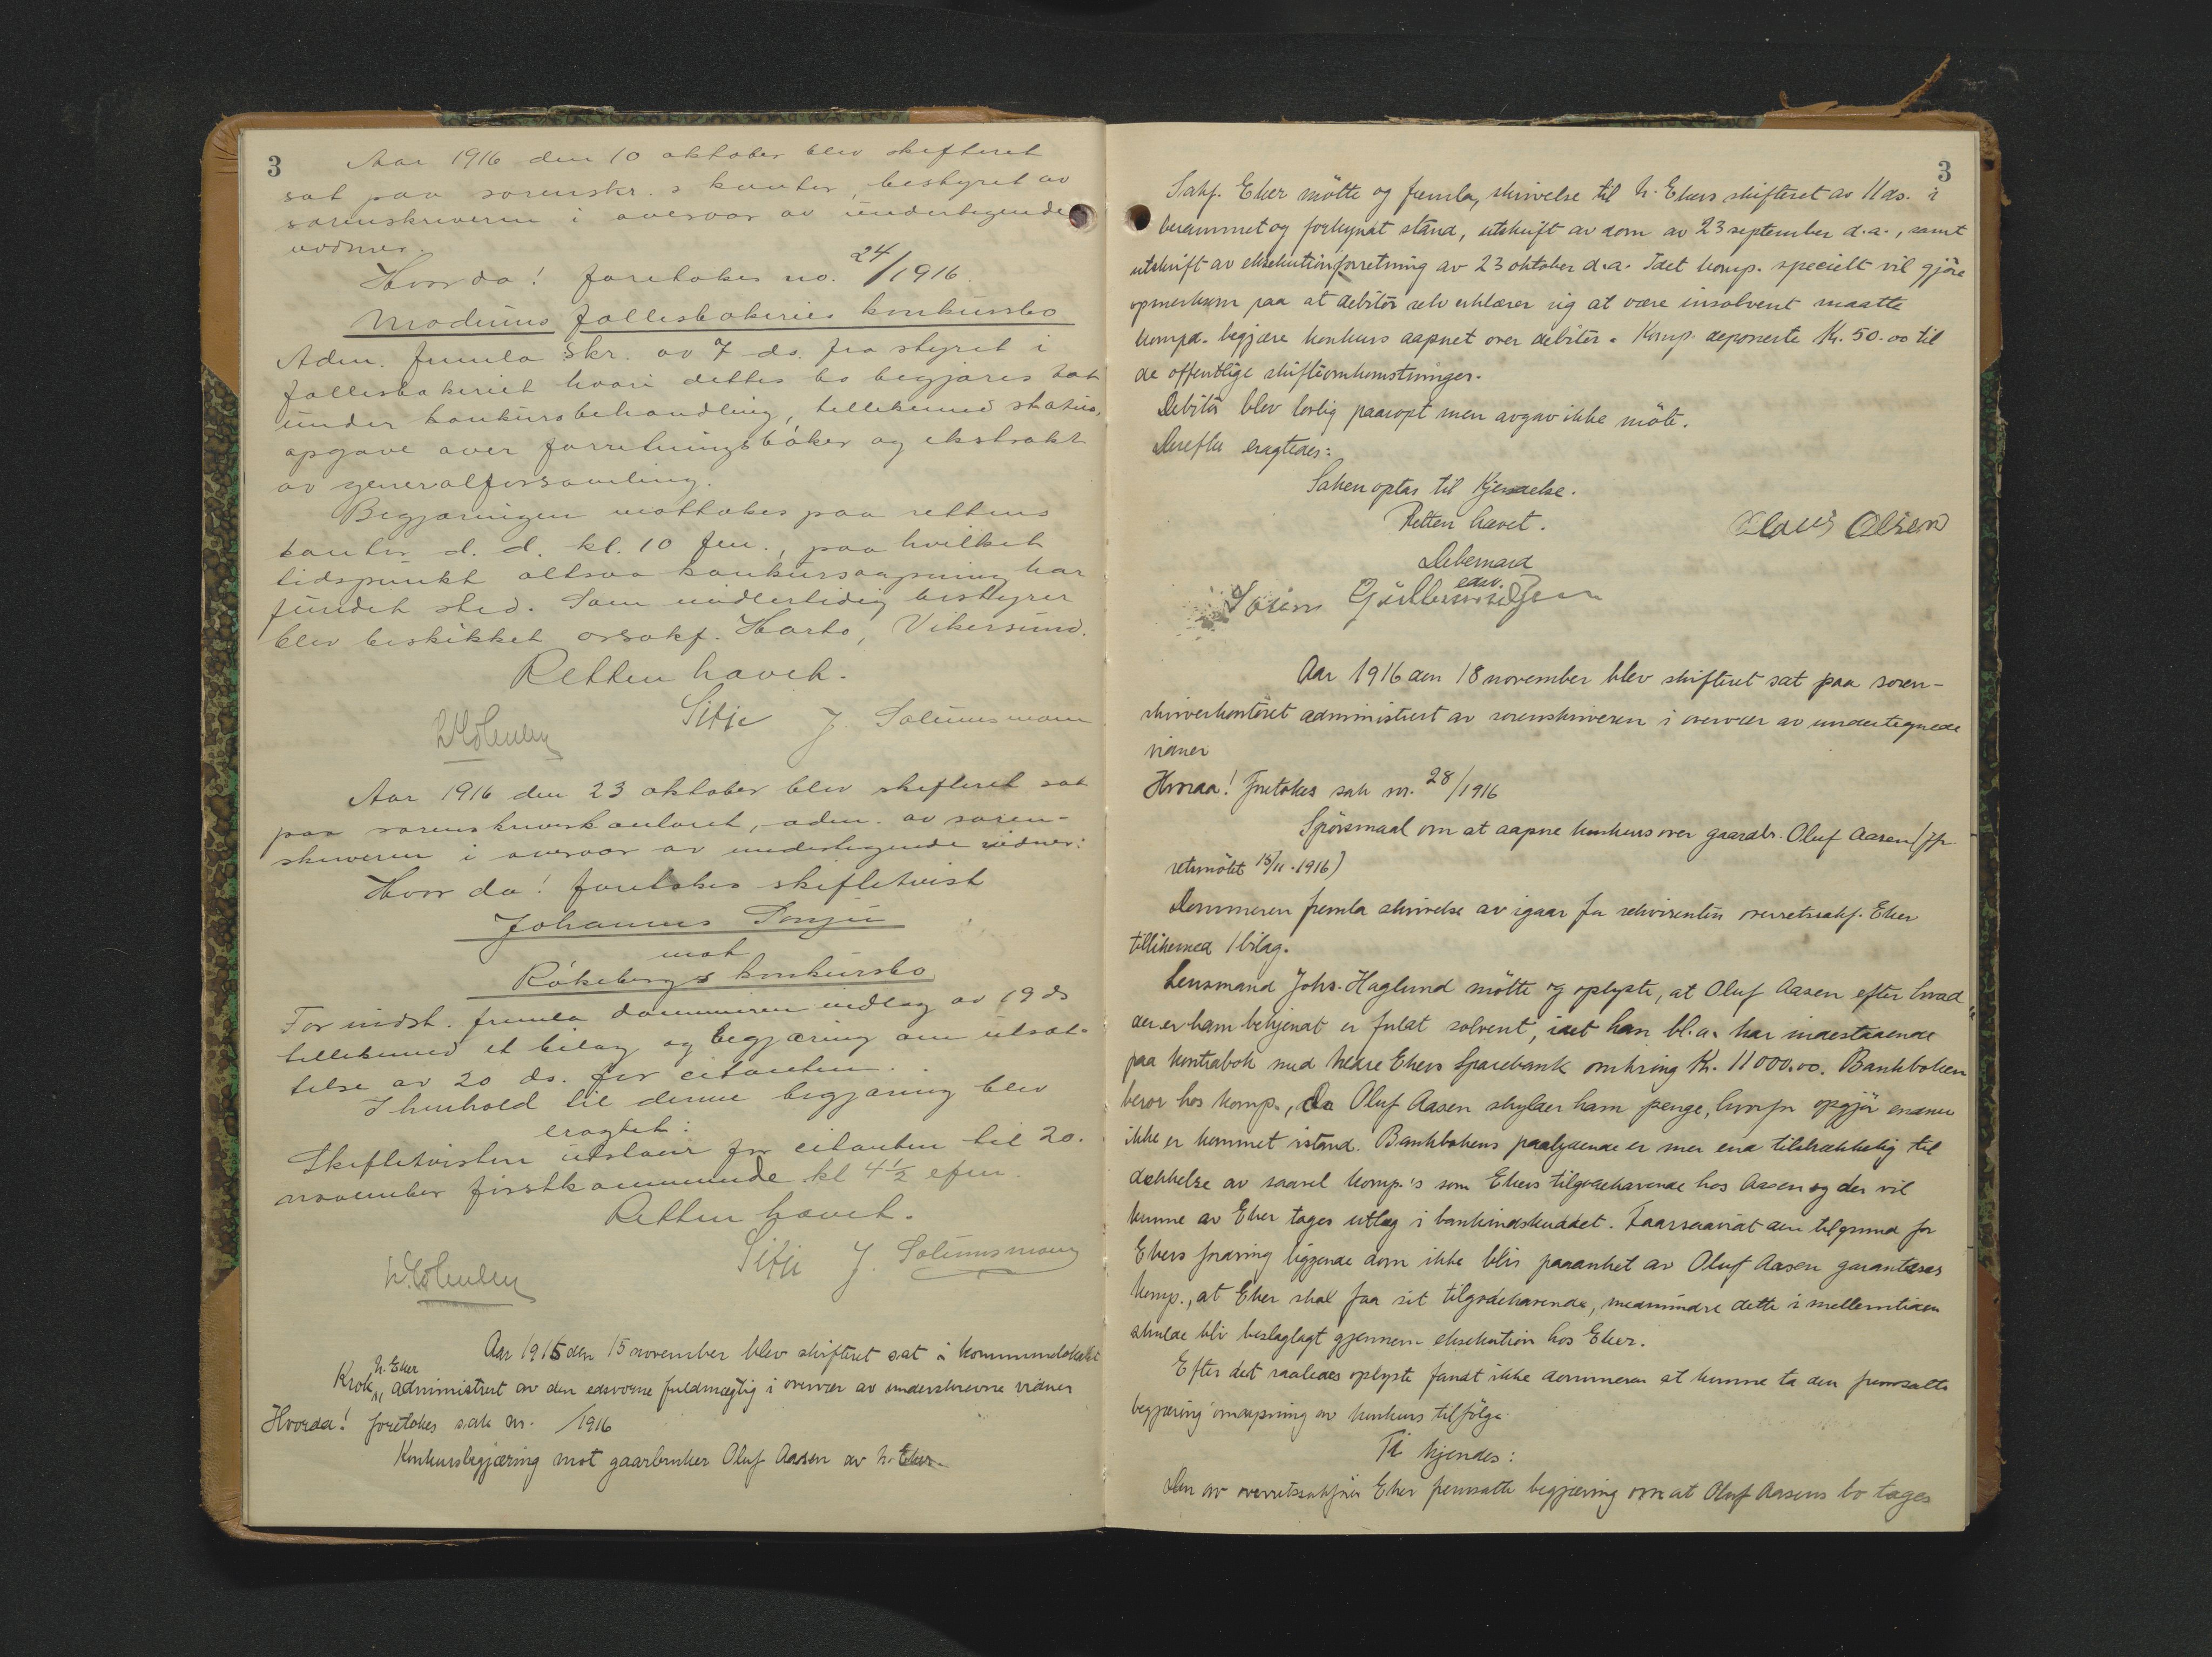 3
Aar 1916 den 10 oktober blev skifteret
sat paa sorenskr.s kontor, bestyret av
sorenskriveren i overvær av undertegnede
vidner.
Hvorda! foretokes no. 24/1916.
Modums fællesbakeries konkursbo
Adm. fremla skr. av 7 ds. fra styret i
fællesbakeriet hvori dettes bo begjæres tat
under konkursbehandling, tillikemed status,
opgave over forretningsbøker og ekstrakt
av generalforsamling.
Begjæringen mottokes paa rettens
kontor d. d. kl. 10 fm., paa hvilket
tidspunkt altsaa konkursaapning har
fundet sted. Som midlertidig bestyrer
blev beskikket orsakf. Harbo, Vikersund.
Retten hævet.
Sitje J. Solumsmoen
Aar 1916 den 23 oktober blev skifteret sat
paa sorenskriverkontoret, adm. av soren-
skriveren i overvær av undertegnede vidner:
Hvor da! foretokes skiftetvist
Johannes
mot
Råkebergs konkursbo
For indst. fremla dommeren indlæg av 19 ds
tillikemed et bilag og begjæring om utsæt-
telse av 20 ds. for citanten.
I henhold til denne begjæring blev
eragtet:
Skiftetvisten utstaar for citanten til 20.
november førstkommende kl 4½ efm.
Retten hævet.
Sitje J. Solumsmoen
Aar 1916 den 15 november blev skifteret sat i kommunelokalet
N. Eker
Krok, administrert av den edsvorne fuldmægtig i overvær av underskrevne vidner
Hvorda! foretokes sak nr. /1916
Konkursbegjæring mot gaardbruker Oluf Aasen av N. Eker.
3
Sakf. Eker møtte og fremla, skrivelse til N. Ekers skifteret av 11 ds. i
berammet og forkyndt stand, utskrift av dom av 23 september d.a., samt
utskrift av eksekutionsforretning av 23 oktober d.a. Idet komp. specielt vil gjøre
opmerksom paa at debitor selv erklærer sig at være insolvent maatte
kompa. begjære konkurs aapnet over debitor. Komp. deponerte Kr. 50.00 til
de offentlige skifteomkostninger.
Debitor blev lovlig paaropt men avgav ikke møte.
Derefter eragtedes:
Saken optas til Kjendelse.
Retten hævet. Claus Olsen
edsv.
Aar 1916 den 18 november blev skifteret sat paa soren-
skriverkontoret administrert av sorenskriveren i overvær av undertegnede
vidner
Hvorda! Foretokes sak nr. 28/1916
Spørsmaal om at aapne konkurs over gaardbr. Oluf Aasen (jfr.
retsmøtet 15/11-1916)
Dommeren fremla skrivelse av igaar fra rekvirenten overretssakf. Eker
tillikemed 1 bilag.
Lensmand Johs. Haglund møtte og oplyste, at Oluf Aasen efter hvad
der er ham bekjendt er fuldt solvent, idet han bl.a. har indestaaende
paa kontrabok med Nedre Ekers Sparebank omkring Kr. 11000.00. Bankboken
beror hos komp., da Oluf Aasen skylder ham penge, hvorfor opgjør endnu
ikke er kommet istand. Bankbokens paalydende er mer end tilstrækkelig til
dækkelse av saavel komp.'s som Ekers tilgodehavende hos Aasen og der vil
kunne av Eker tages utlæg i bankindskuddet. Faarsaavidt den tilgrund for
Ekers fordring liggende dom ikke blir paaanket av Oluf Aasen garanteres
komp., at Eker skal faa sit tilgodehavende, medmindre dette i mellemtiden
skulde bli beslaglagt gjennem eksekution hos Eker.
Efter det saaledes oplyste fandt ikke dommeren at kunne ta den fremsatte
begjæring om aapning av konkurs tilfølge.
Ti kjendes:
Den av overretssakfører Eker fremsatte begjæring om at Oluf Aasens bo tages